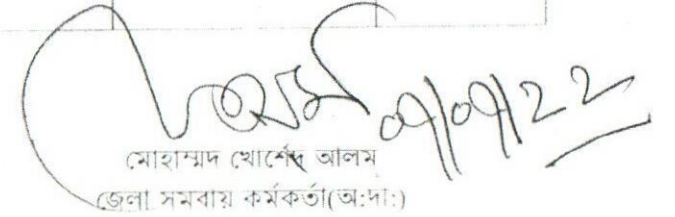 ০৭/০৭/২২
মোহাম্মদ খোর্শেদ আলম
জেলা সমবায় কর্মকর্তা(অ:দা:)